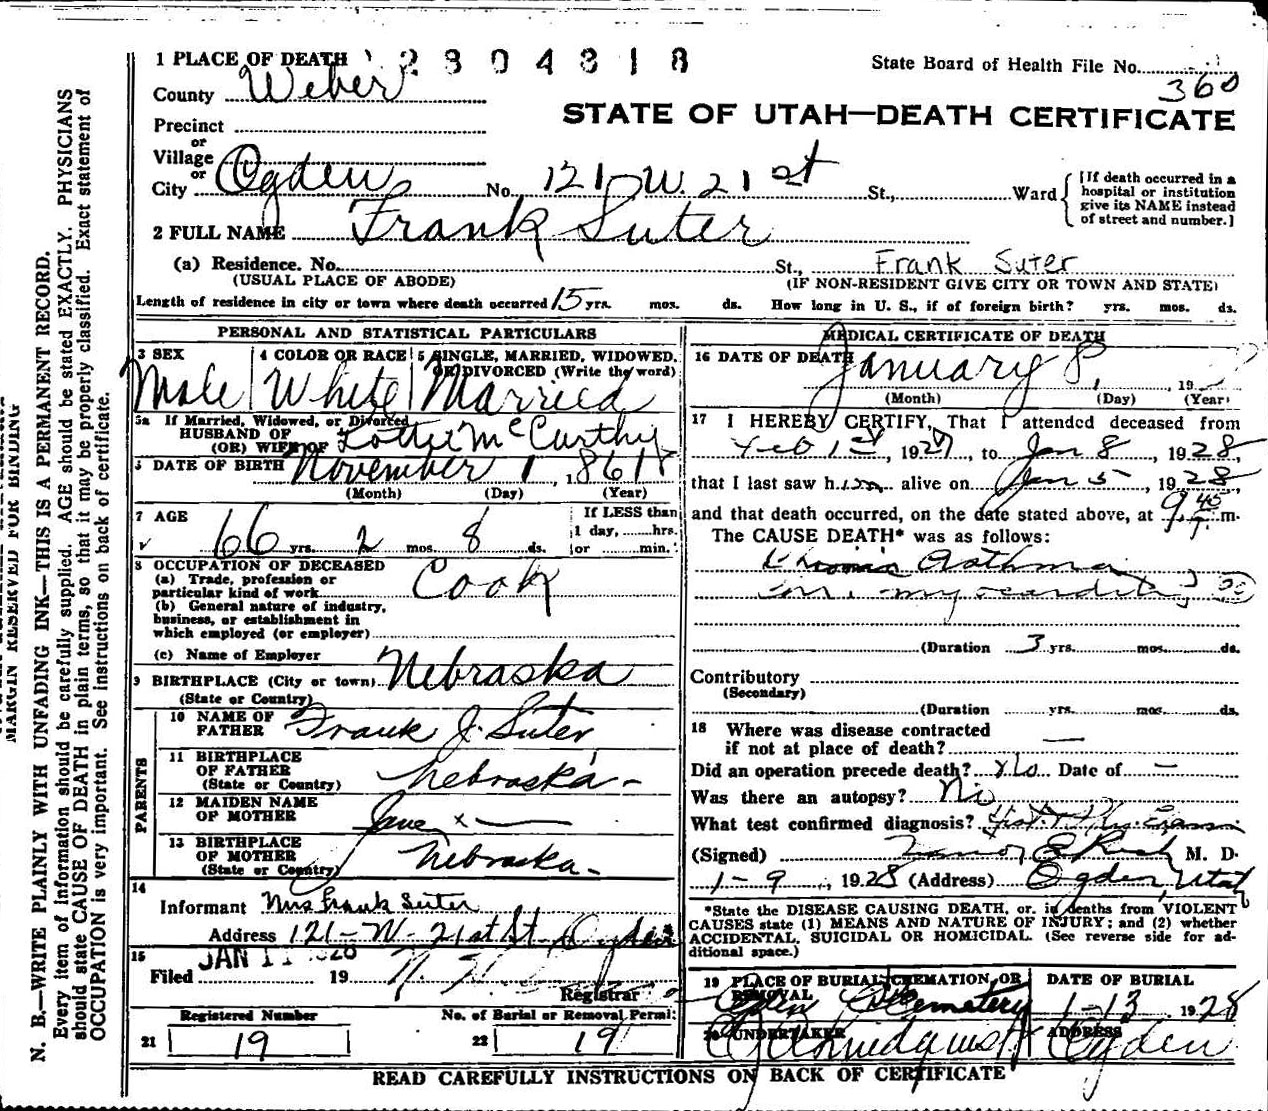 1 PLACE OF DEATH 2 8 0 4 3 1 8
State Board of Health File No. 360
County Weber
STATE OF UTAH—DEATH CERTIFICATE
Precinct
or
Village
or
City Ogden No. 121 W. 21st St., Ward
[If death occurred in a hospital or institution give its NAME instead of street and number.]
2 FULL NAME Frank Suter
(a) Residence. No. St., Frank Suter
(USUAL PLACE OF ABODE) (IF NON-RESIDENT GIVE CITY OR TOWN AND STATE)
Length of residence in city or town where death occurred 15 yrs. mos. ds. How long in U. S., if of foreign birth? yrs. mos. ds.
PERSONAL AND STATISTICAL PARTICULARS
3 SEX 4 COLOR OR RACE 5 SINGLE, MARRIED, WIDOWED,
OR DIVORCED (Write the word)
Male White Married
5a If Married, Widowed, or Divorced
HUSBAND OF
(OR) WIFE OF Lottie McCurthy
DATE OF BIRTH November 1, 1861
(Month) (Day) (Year)
7 AGE
66 yrs. 2 mos. 8 ds.
If LESS than
1 day, hrs.
or min.
8 OCCUPATION OF DECEASED
(a) Trade, profession or
particular kind of work Cook
(b) General nature of industry,
business, or establishment in
which employed (or employer)
(c) Name of Employer
9 BIRTHPLACE (City or town) Nebraska
(State or Country)
PARENTS
10 NAME OF
FATHER Frank J. Suter
11 BIRTHPLACE
OF FATHER
(State or Country) Nebraska-
12 MAIDEN NAME
OF MOTHER Jane x —
13 BIRTHPLACE
OF MOTHER
(State or Country) Nebraska-
14
Informant Mrs Frank Suter
Address 121-W-21st St. Ogden
15 JAN 11 1928
Filed 19
Registrar
Registered Number No. of Burial or Removal Permit
21 19 22 19
MEDICAL CERTIFICATE OF DEATH
16 DATE OF DEATH January 8, 19
(Month) (Day) (Year)
17 I HEREBY CERTIFY, That I attended deceased from
Feb 1st, 1927, to Jan 8, 1928
that I last saw him alive on Jan 5, 1928
and that death occurred, on the date stated above, at 9 45 P. m.
The CAUSE DEATH* was as follows:
Chronic Asthma
myocarditis
(Duration 3 yrs. mos. ds.
Contributory
(Secondary)
(Duration yrs. mos. ds.
18 Where was disease contracted
if not at place of death? —
Did an operation precede death? No Date of —
Was there an autopsy? No
What test confirmed diagnosis?
(Signed) M. D.
1-9, 1928 (Address) Ogden, Utah
*State the DISEASE CAUSING DEATH, or, in deaths from VIOLENT
CAUSES state (1) MEANS AND NATURE OF INJURY; and (2) whether
ACCIDENTAL, SUICIDAL OR HOMICIDAL. (See reverse side for ad-
ditional space.)
19 PLACE OF BURIAL, CREMATION, OR
REMOVAL DATE OF BURIAL
Cemetery 1-13 1928
20 UNDERTAKER ADDRESS
Ogden
READ CAREFULLY INSTRUCTIONS ON BACK OF CERTIFICATE
MARGIN RESERVED FOR BINDING
N. B.—WRITE PLAINLY WITH UNFADING INK—THIS IS A PERMANENT RECORD.
Every item of information should be carefully supplied. AGE should be stated EXACTLY. PHYSICIANS
should state CAUSE OF DEATH in plain terms, so that it may be properly classified. Exact statement of
OCCUPATION is very important. See instructions on back of certificate.